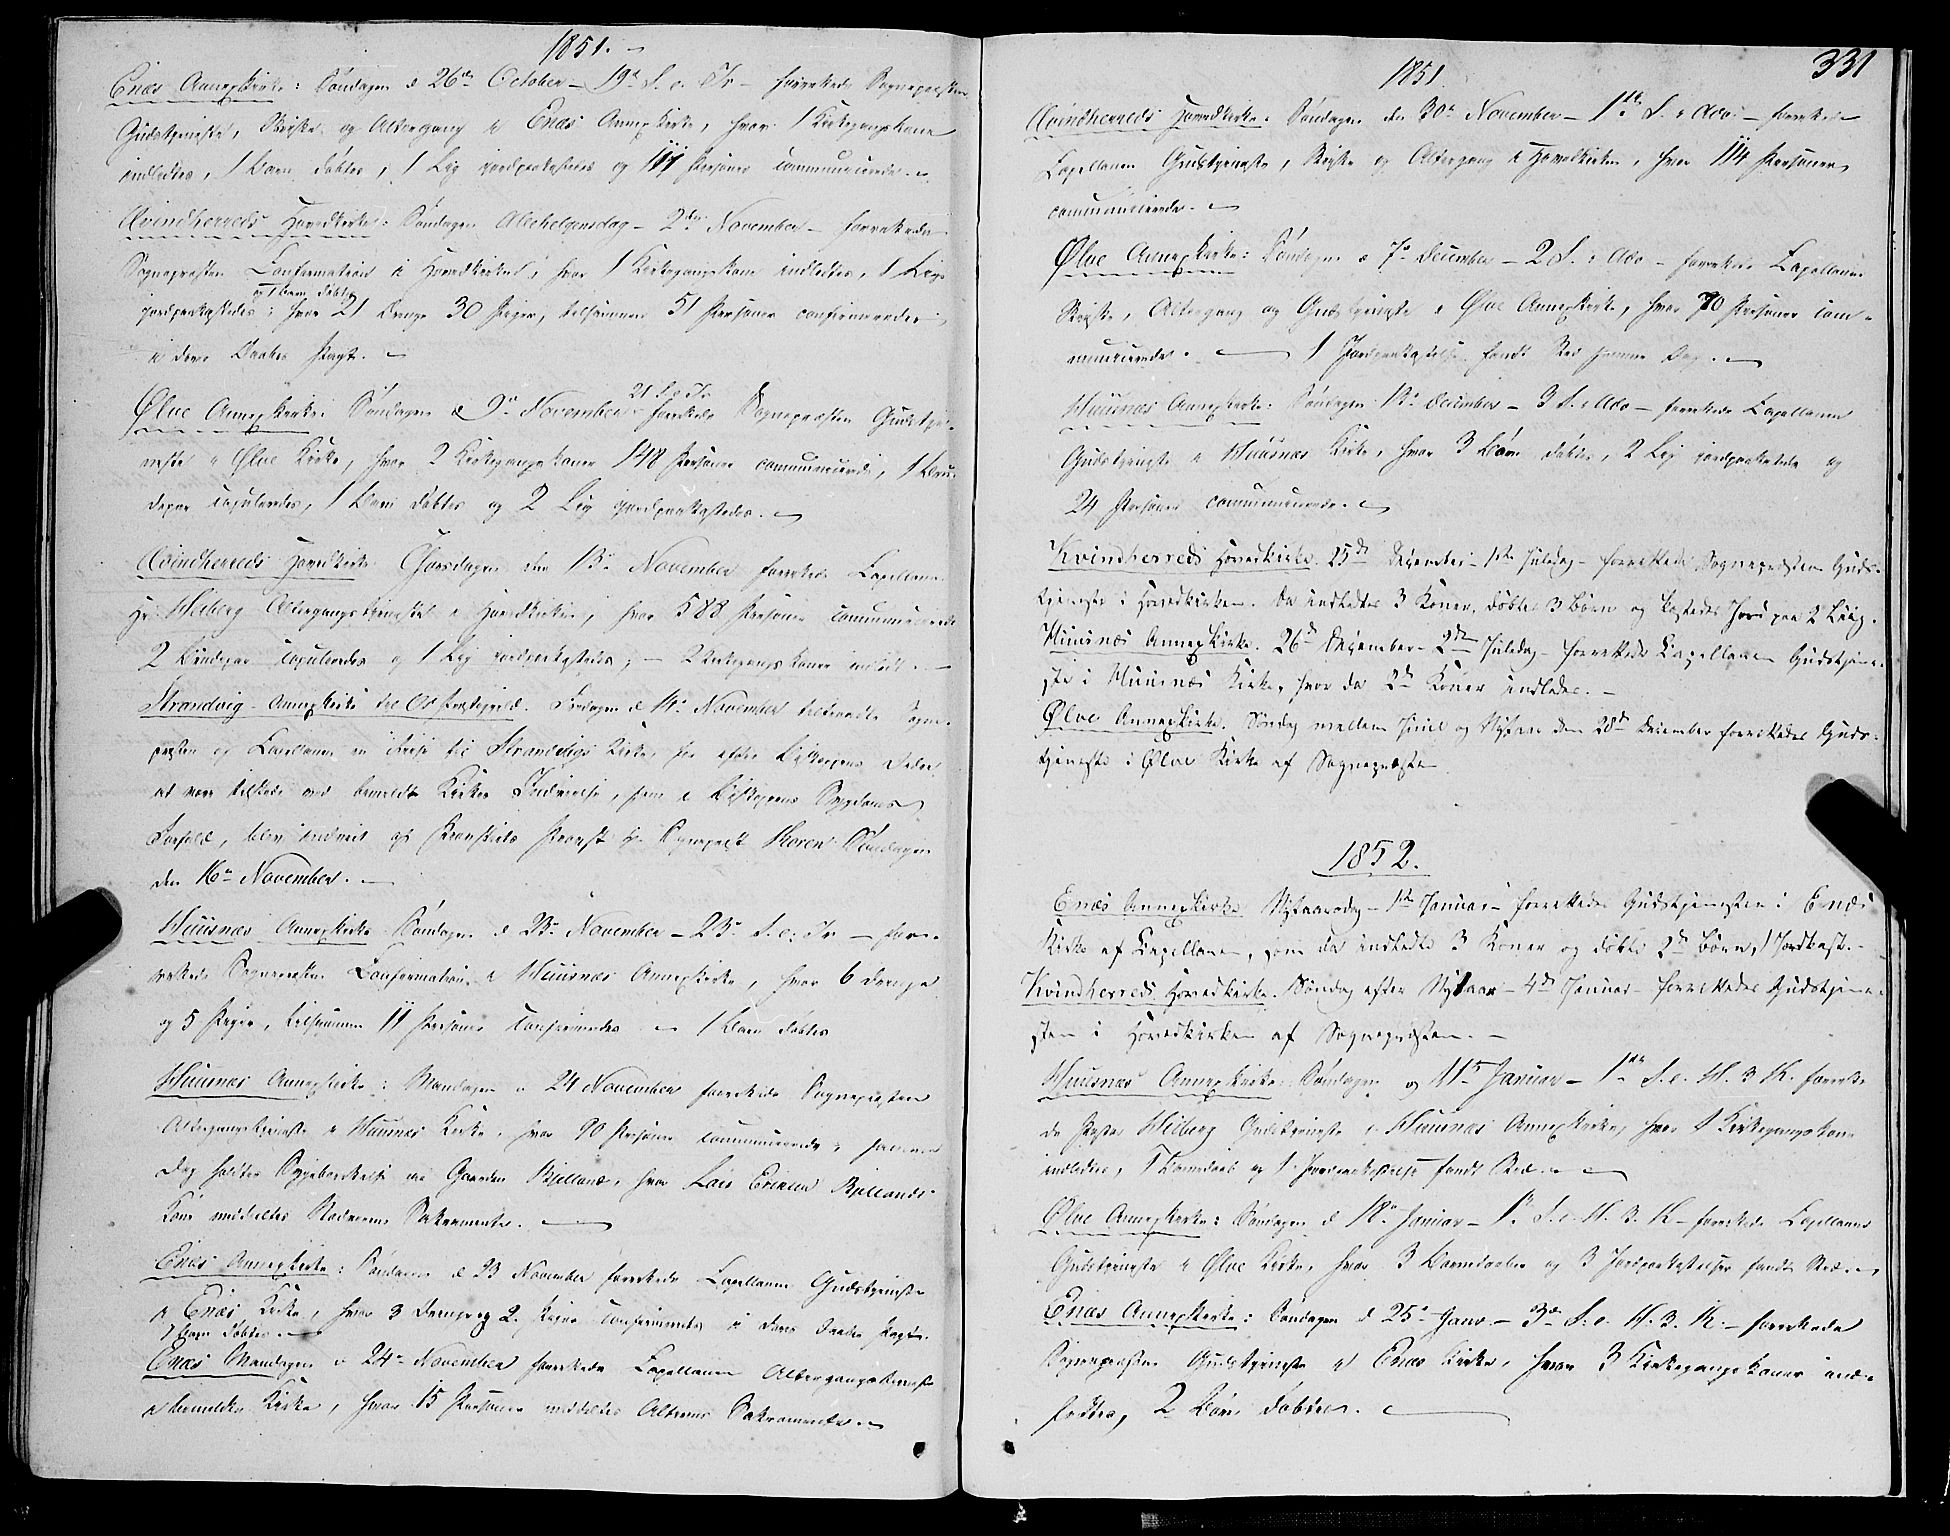 1851.
Enæs Annexkirke: Søndagen d 26de October – 19de S. e. Tr – forrettede Sognepræsten
Gudstjeneste, Skrifte og Altergang i Enæs Annexkirke, hvor 1 Kirkegangskone
indledtes, 1 Barn døbtes, 1 Lig jordpaakastedes og 111 Personer communicerede.
Qvindherreds Hovedkirke: Søndagen Allehelgensdag – 2den November – forrettede
Sognepræsten Confirmation i Hovedkirken, hvor 1 Kirkegangskone indledtes, 1 Lig
og 1 barn døbtes
jordpaakastedes; hvor 21 Drenge 30 Piger, tilsammen 51 Personer confirmeredes
i deres Daabes Pagt.
21 S. e. Tr
Ølve Annexkirke: Søndagen d 9de November forrettede Sognepræsten Gudstje-
neste i Ølve Kirke, hvor 2 Kirkegangskoner 148 Personer communicerede, 1 Bru-
depar copuleredes, 1 Barn døbtes og 2 Lig jordpaakastedes.
Qvindherreds Hovedkirke Thorsdagen den 13de November forrettede Capellanen
Hr Heiberg Altergangstjeneste i Hovedkirken, hvor 588 Personer communicerede
2 Brudepar copuleredes og 1 Lig jordpaakastedes; – 2 Kirkegangskoner indledt.
Strandvig Annexkirke til Os Præstegjeld. Fredagen d 14de November tiltraadte Sogne-
præsten og Capellanen en Reise til Strandvigs Kirke, for efter Biskoppens Ordre
at være tilstede ved bemeldte Kirkes Indvielse, som i Biskopens Sygdoms
Forfald, blev indviet af Provstiets Provst Hr Sognepræst Koren Søndagen
den 16de November.
Huusnæs Annexkirke Søndagen d 23de November – 23de S. e. Tr – forr-
ettede Sognepræsten Confirmation i Huusnæs Annexkirke, hvor 6 Drenge
og 5 Piger, tilsammen 11 Personer Confirmeredes – 1 Barn døbtes
Huusnæs Annexkirke: Mandagen d 24 November forrettede Sognepræsten
Altergangstjeneste i Huusnæs Kirke, hvor 90 Personer communicerede; samme
Dag holdtes Sygeberettelse paa Gaarden Bjelland, hvor Lars Eriksen Bjellands
Kone meddeltes Nadverens Sakramente.
Enæs Annexkirke: Søndagen d 23 November forrettede Capellanen Gudstjeneste
i Enæs Kirke, hvor 3 Drenge og 2 Piger confirmeredes i deres Daabes Pagt.
1 Barn døbtes.
Enæs Mandagen d 24de November forrettede Capellanen Altergangstjeneste
i bemeldte Kirke, hvor 15 Personer meddeltes Alterens Sakramente.
331
1851.
Qvindherreds Hovedkirke: Søndagen den 30de November – 1ste S. i Adv. – forrettede
Capellanen Gudstjeneste, Skrifte og Altergang i Hovedkirken, hvor 114 Personer
communicerede.
Ølve Annexkirke: Søndagen d 7de December – 2 S. i Adv – forrettede Capellanen
Skrifte, Altergang og Gudstjeneste i Ølve Annexkirke, hvor 70 Personer com-
municerede. 1 Jordpaakastelse fandt Sted samme Dag.
Huusnæs Annexkirke: Søndagen 13de December – 3 S. i Adv – forrettede Capellanen
Gudstjeneste i Huusnæs Kirke, hvor 3 Børn døbtes, 2 Lig jordpaakastedes og
24 Personer communicerede.
Kvindherreds Hovedkirke. 25de December – 1ste Juledag – forrettede Sognepræsten Guds-
tjeneste i Hovedkirken. Da indledtes 3 Koner, døbtes 3 Børn og kastedes Jord paa 2 Liig.
Huusnæs Annexkirke. 26de December – 2den Juledag – forrettede Capellanen Gudstjene-
ste i Huusnæs Kirke, hvor da 2de Koner indledes. –
Ølve Annexkirke. Søndag mellem Juul og Nytaar den 28de December forrettedes Guds-
tjeneste i Ølve Kirke af Sognepræsten
1852.
Enæs Annexkirke Nytaarsdag – 1ste Januar – forrettedes Gudstjenesten i Enæs
Kirke af Capellanen, som da indledte 3 Koner og døbte 2de Børn, 1 Jordkast. –
Kvindherreds Hovedkirke. Søndag efter Nytaar – 4de Januar – forrettedes Gudstjene-
sten i Hovedkirken af Sognepræsten. –
Huusnæs Annexkirke Søndagen d 11te Januar – 1ste S. e. H. 3 K. forrette-
de Præsten Heiberg Gudstjeneste i Huusnæs Annexkirke, hvor 1 Kirkegangskone
indledtes, 1 Barnedaab og 1 Jordpaakastelse fandt Sted.
Ølve Annexkirke: Søndagen d 18de Januar – S. e. H. 3. K – forrettede Capellanen
Gudstjeneste i Ølve Kirke, hvor 3 Barnedaaber og 3 Jordpaakastelser fandt Sted.
Enæs Annexkirke: Søndagen d 25de Janr. – 3die S. e. H. 3. K. – forrettede
Sognepræsten Gudstjeneste i Enæs Kirke, hvor 3 Kirkegangskoner ind-
ledtes, 2 Børn døbtes.